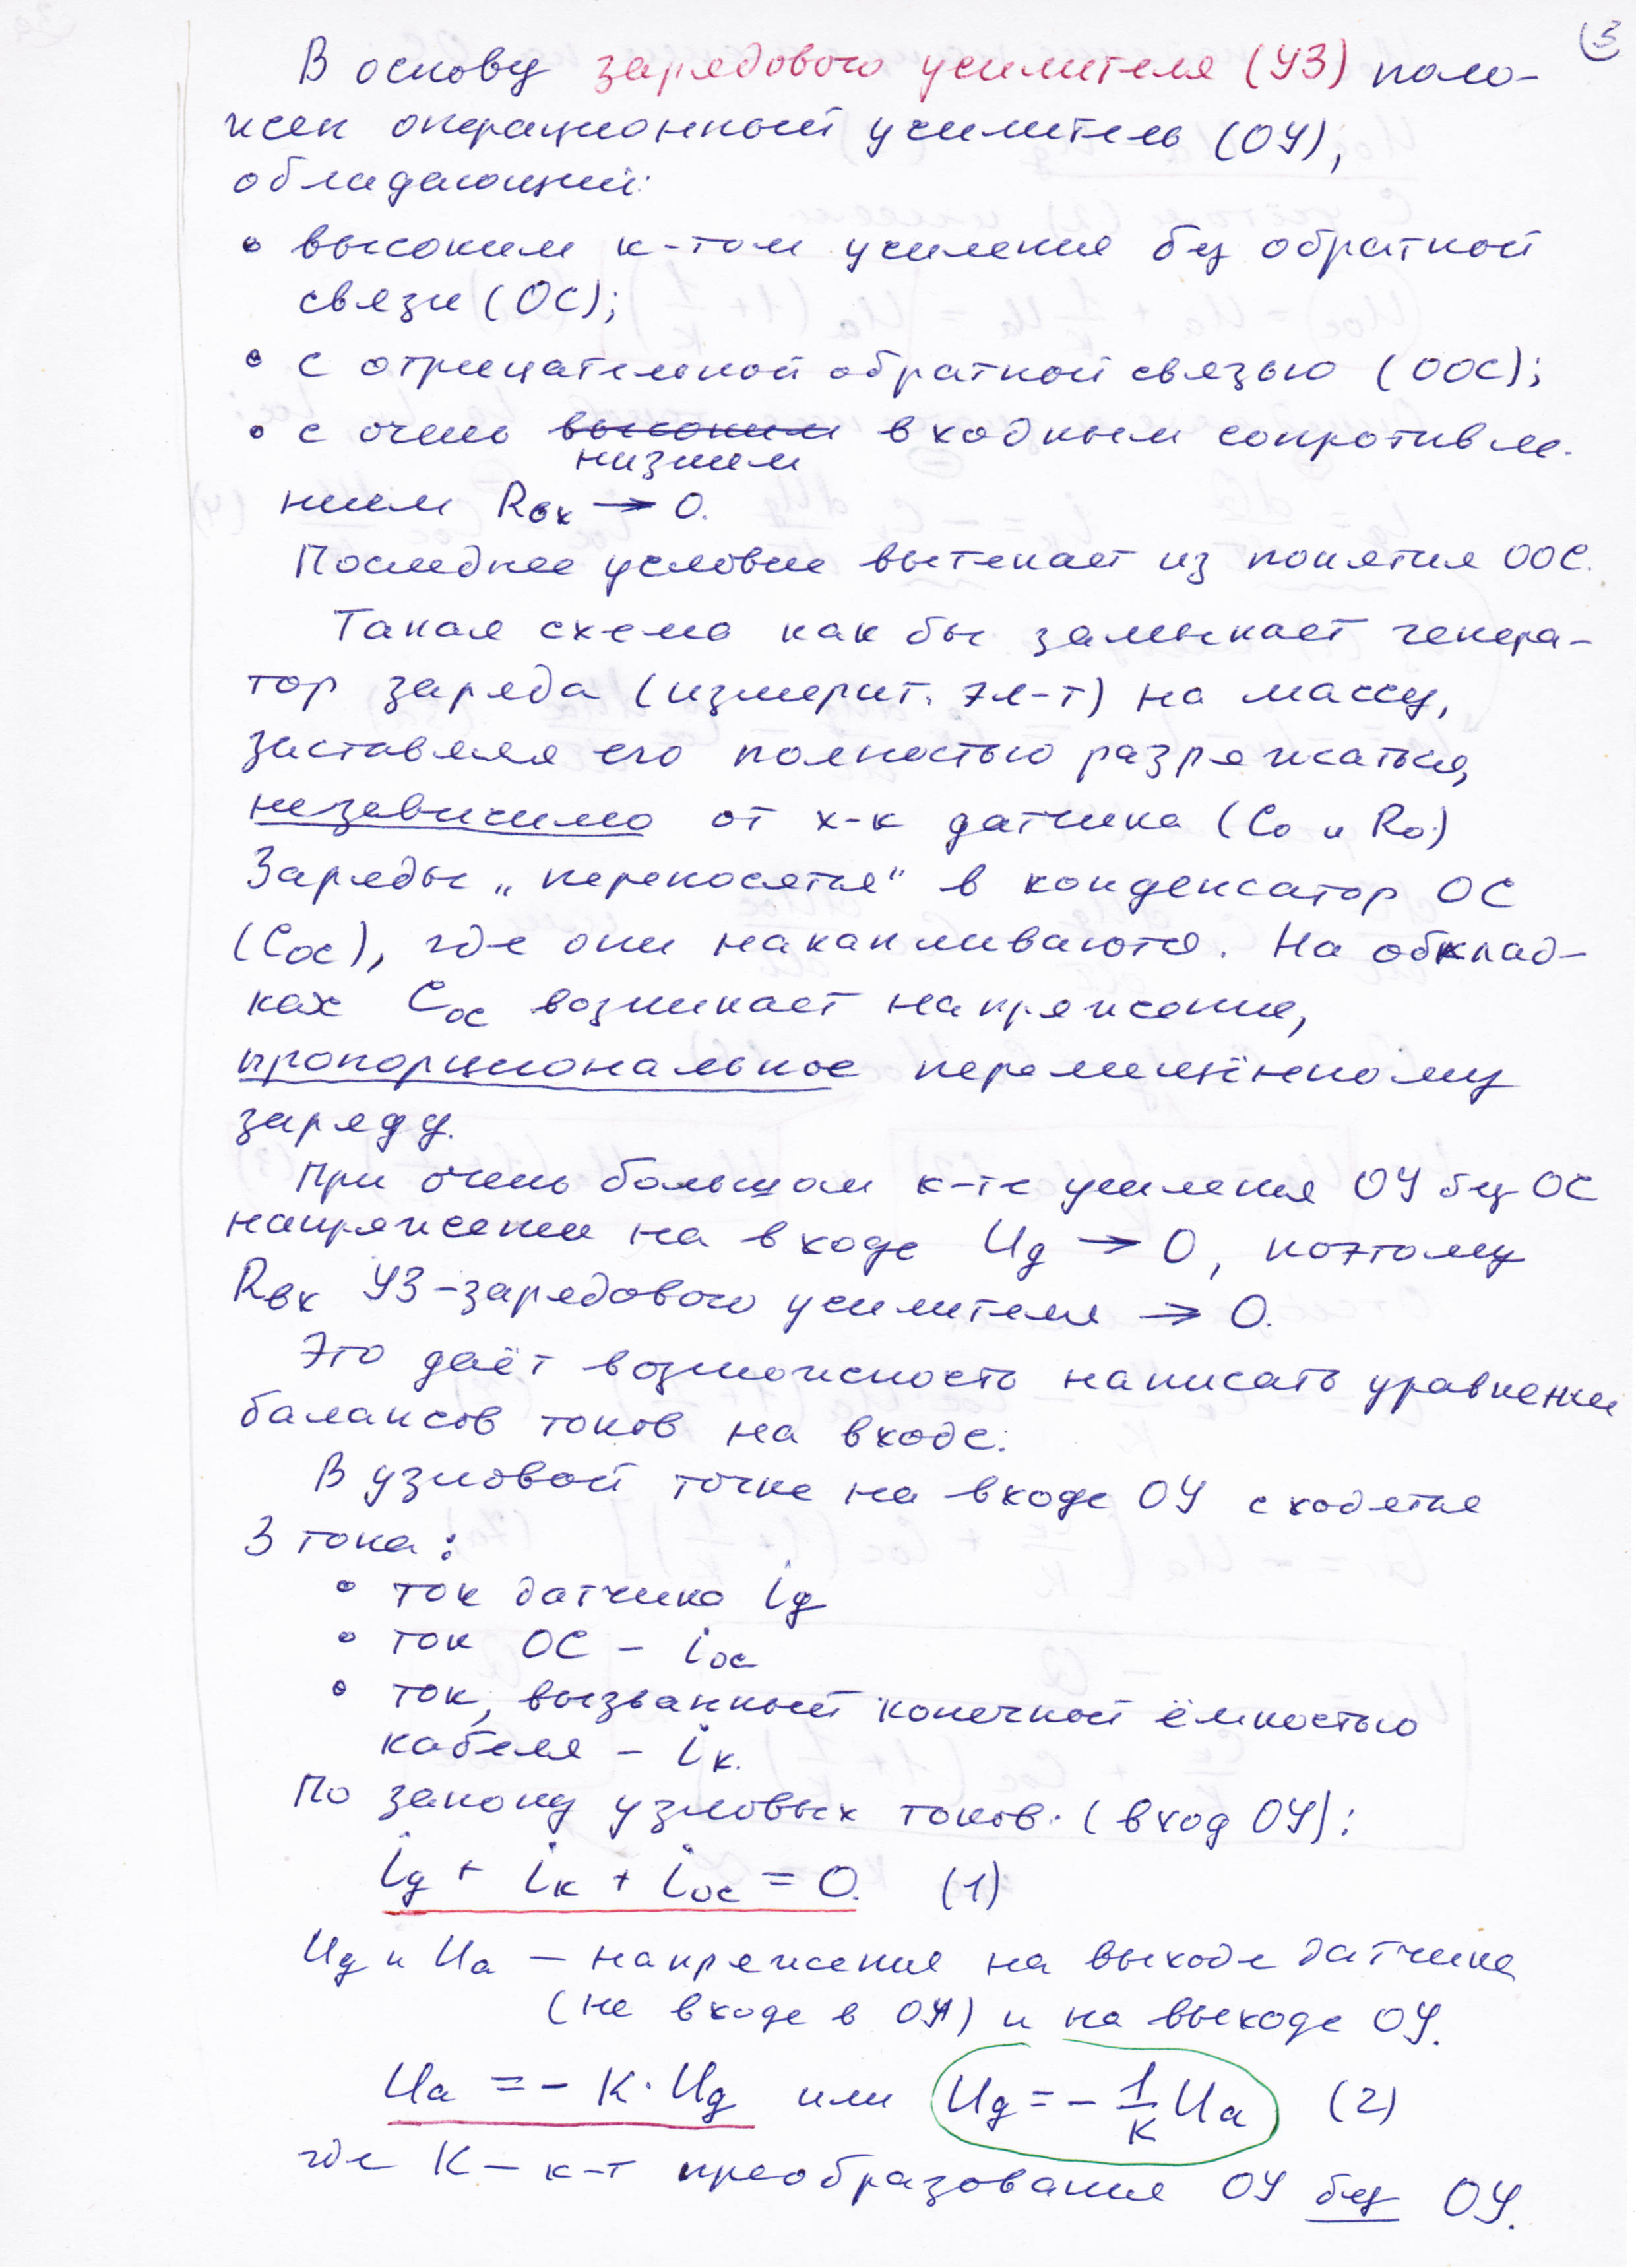 3
В основу зарядового усилителя (УЗ) поло-
жен операционный усилитель (ОУ),
обладающий:
• высоким к-том усиления без обратной
связи (ОС);
• с отрицательной обратной связью (ООС);
• с очень высоким входным сопротивле-
низким
нием Rвх → 0.
Последнее условие вытекает из понятия ООС.
Такая схема как бы замыкает генера-
тор заряда (измерит. эл-т) на массу,
заставляя его полностью разряжаться,
независимо от х-к датчика (C₀ и R₀)
Заряды „переносятся“ в конденсатор ОС
(Cос), где они накапливаются. На обклад-
ках Cос возникает напряжение,
пропорциональное перемещённому
заряду.
При очень большом к-те усиления ОУ без ОС
напряжение на входе Uд → 0, поэтому
Rвх УЗ-зарядового усилителя → 0.
Это даёт возможность написать уравнение
балансов токов на входе.
В узловой точке на входе ОУ сходятся
3 тока:
• ток датчика iд
• ток ОС – iос
• ток, вызванный конечной ёмкостью
кабеля – iк.
По закону узловых токов (вход ОУ):
iд + iк + iос = 0. (1)
Uд и Uа – напряжения на выходе датчика
(на входе в ОУ) и на выходе ОУ.
Uа = - К · Uд или Uд = - 1/К Uа (2)
где К – к-т преобразования ОУ без ОУ.